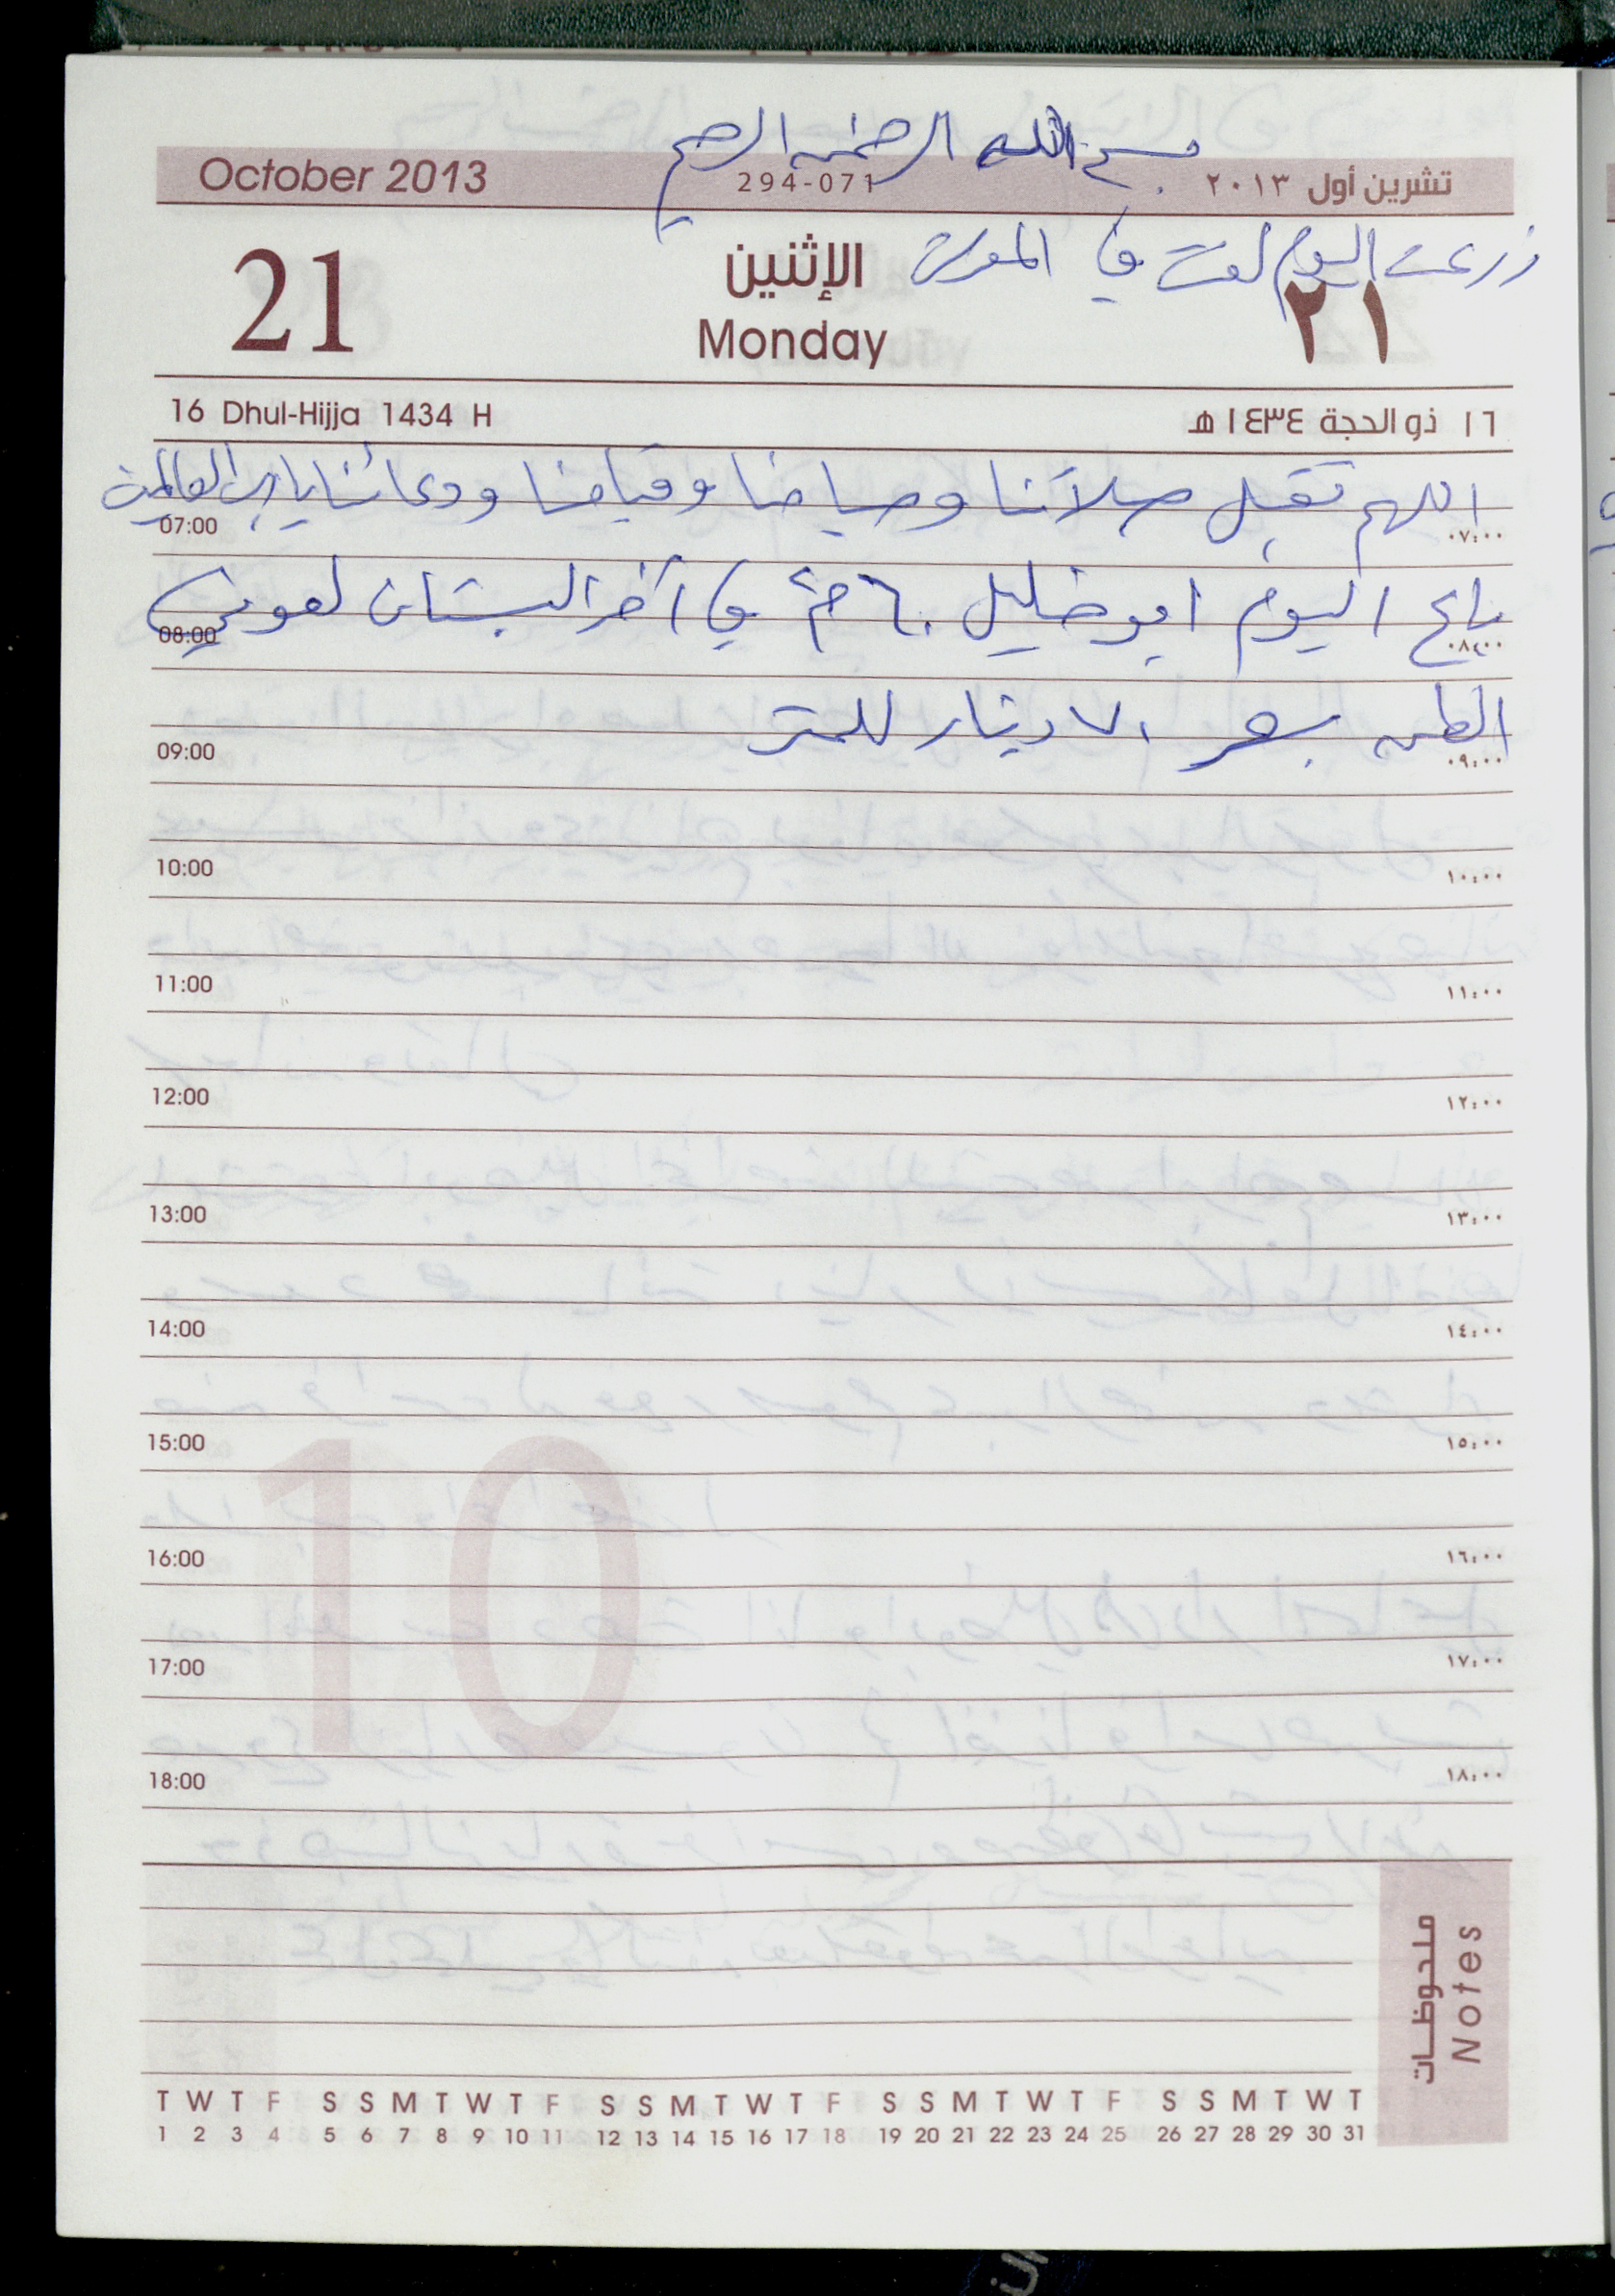 بسم الله الرحمن الرحيم
October 2013 294-071 تشرين أول ٢٠١٣
زرعت اليوم لفت في المورس
21 الإثنين ٢١
Monday
16 Dhul-Hijja 1434 H ١٦ ذو الحجة ١٤٣٤ هـ
اللهم تقبل صلاتنا وصيامنا وقيامنا ودعائنا يارب العالمين
07:00 ٠٧:٠٠
باع اليوم ابو خليل ٦٠ م٢ في آخر البستان لعوني
08:00 ٠٨:٠٠
بسعر ٧١ دينار للمتر
09:00 ٠٩:٠٠
10:00 ١٠:٠٠
11:00 ١١:٠٠
12:00 ١٢:٠٠
13:00 ١٣:٠٠
14:00 ١٤:٠٠
15:00 ١٥:٠٠
10
16:00 ١٦:٠٠
17:00 ١٧:٠٠
18:00 ١٨:٠٠
ملحوظات
Notes
T W T F S S M T W T F S S M T W T F S S M T W T F S S M T W T
1 2 3 4 5 6 7 8 9 10 11 12 13 14 15 16 17 18 19 20 21 22 23 24 25 26 27 28 29 30 31